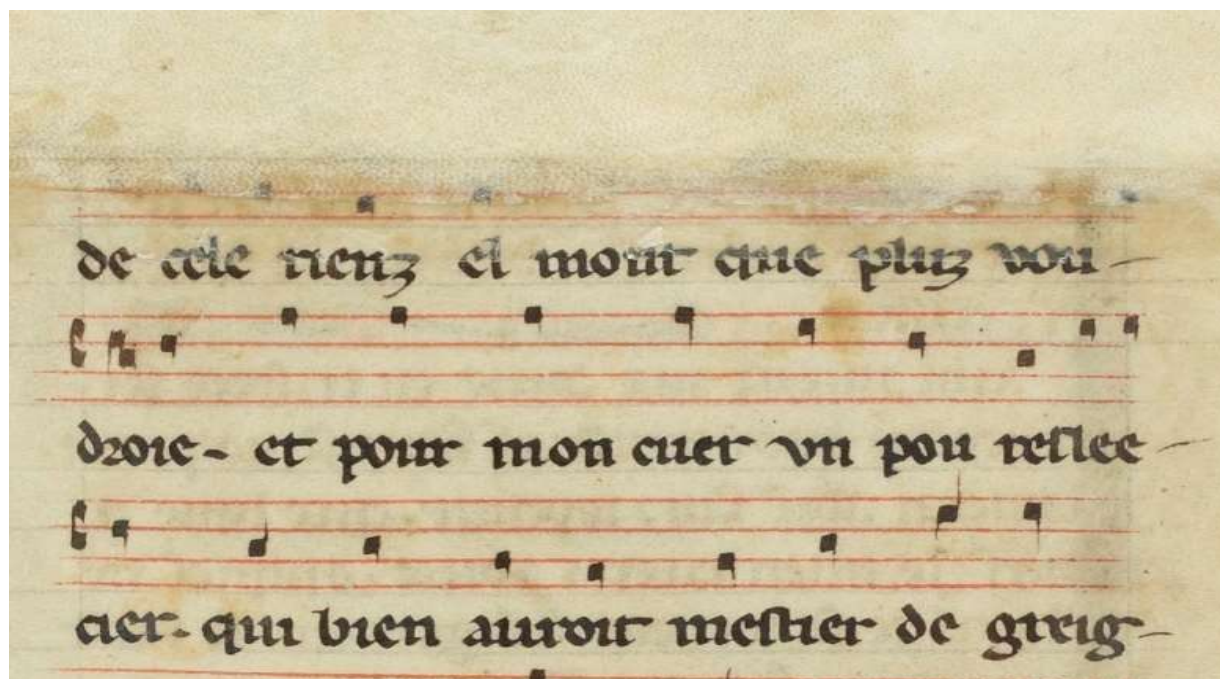 de cele rienz el mont que pluz vou-
droie. et pour mon cuer vn pou reslee-
cier. qui bien auroit mestier de greig-